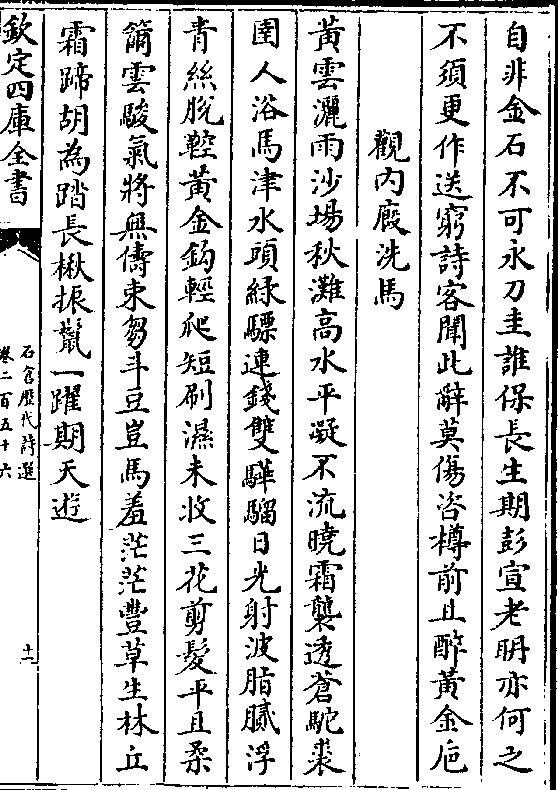 自非金石不可永刀圭誰保長生期彭宣老明亦何之
不須更作送窮詩客聞此辭莫傷咨樽前且酔黄金巵
觀内廐洗馬
黄雲灑雨沙場秋灘高水平凝不流曉霜襲透蒼駝裘
圉人浴馬津水頭緑驃連錢雙驊騮日光射波脂膩浮
青絲脫鞚黄金鈎輕爬短刷濕未收三花剪髮平且柔
籋雲駿氣將無儔束芻斗豆豈馬羞茫茫豐草生林丘
霜蹄胡為踏長楸振鬣一躍期天逰
欽定四庫全書
石倉歴代詩選
卷二百五十六
十一